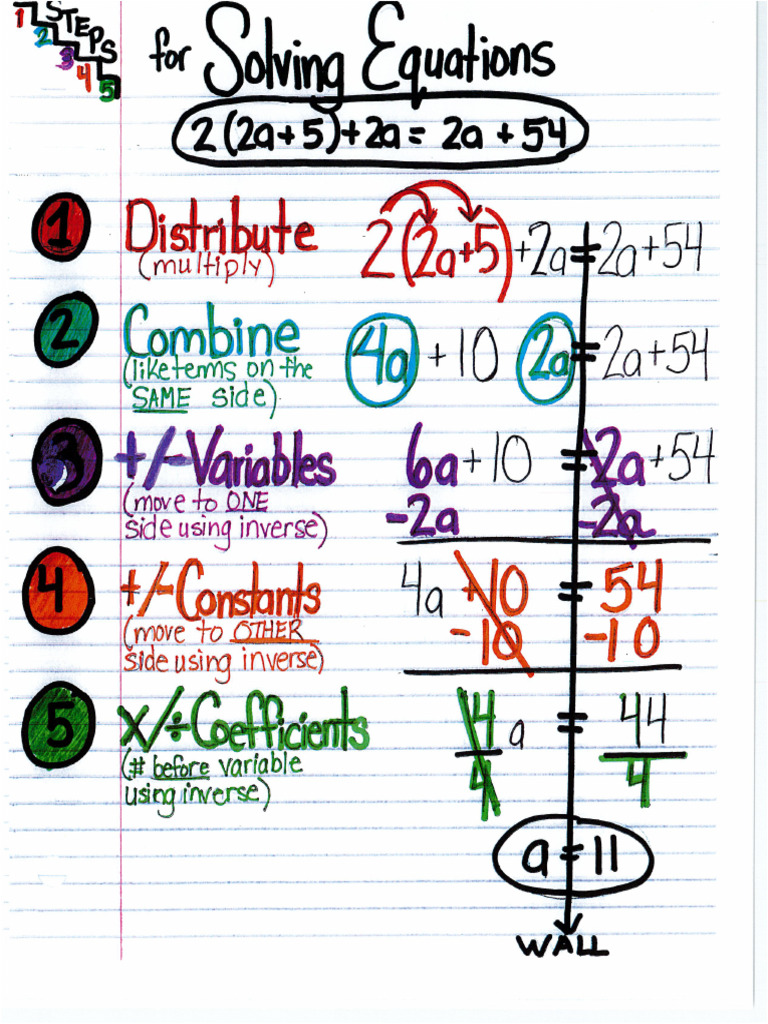 STEPS
1
2
3
4
5
for Solving Equations
2(2a+5)+2a=2a+54
1 Distribute 2(2a+5)+2a=2a+54
(multiply)
2 Combine 4a+10 2a=2a+54
(like terms on the
SAME side)
3 +/-Variables 6a+10=2a+54
(move to ONE -2a -2a
side using inverse)
4 +/-Constants 4a+10=54
(move to OTHER -10 -10
side using inverse)
5 x/÷Coefficients 4a=44
(# before variable 4 4
using inverse)
a=11
WALL